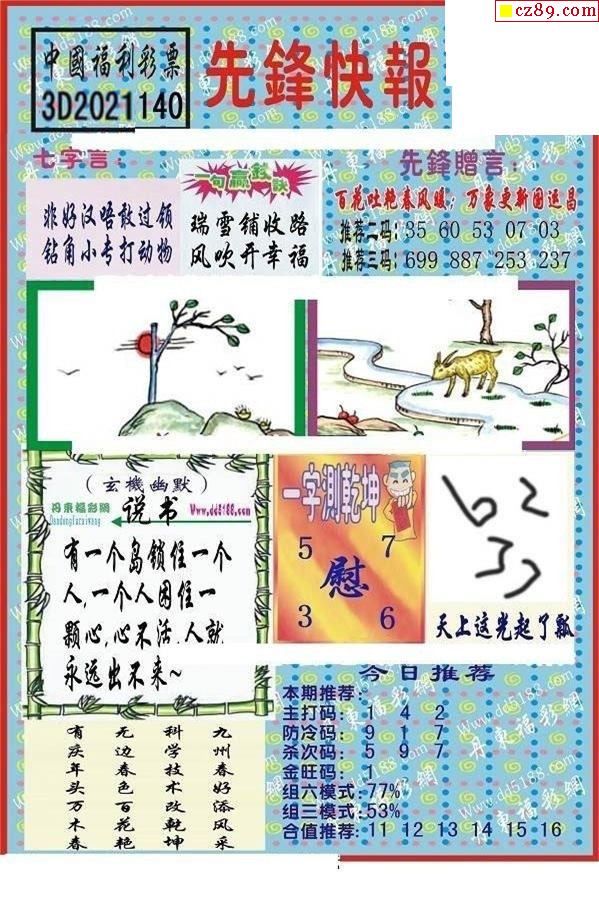 cz89.com
中國福利彩票
3D2021140
先鋒快報
七字言：
非好汉唔敢过领
钻角小专打动物
一句赢錢訣
瑞雪铺收路
风吹开幸福
先鋒贈言：
百花吐艳春风暖；万象更新国运昌
推荐二码：35 60 53 07 03
推荐三码：699 887 253 237
（玄機幽默）
丹東福彩網
Dandongfucaiwang
说书
Www.dd5188.com
有一个岛锁住一个
人,一个人困住一
颗心,心不活,人就
永远出不来~
一字測乾坤
5 7
慰
3 6
天上这光起了瓢
今日推荐
本期推荐：
主打码：1 4 2
防冷码：9 1 7
杀次码：5 9 7
金旺码：1
组六模式：77%
组三模式：53%
合值推荐：11 12 13 14 15 16
九州春好添风采
科学技术改乾坤
无边春色百花艳
有庆年头万木春